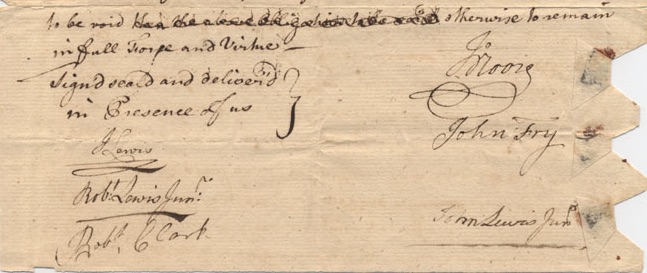 to be void Then the above obligation to be void otherwise to remain
in full Forse and Virtue —
Signd seald and deliver'd
in Presence of us
J Lewis
Robt. Lewis Junr.
Robt. Clark
J Moore
John Fry
John Lewis Junr